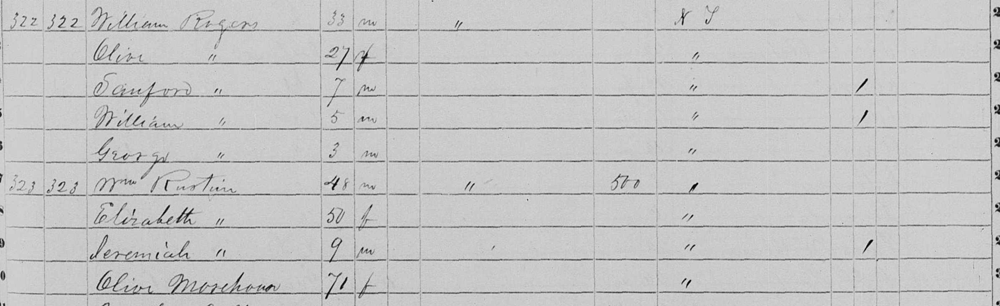 322 322 William Rogers 33 m " N J
Olive " 27 f "
Sanford " 7 m " 1
William " 5 m " 1
George " 3 m "
323 323 Wm Rustin 48 m " 500 "
Elizabeth " 50 f "
Jeremiah " 9 m " 1
Olive 71 f "